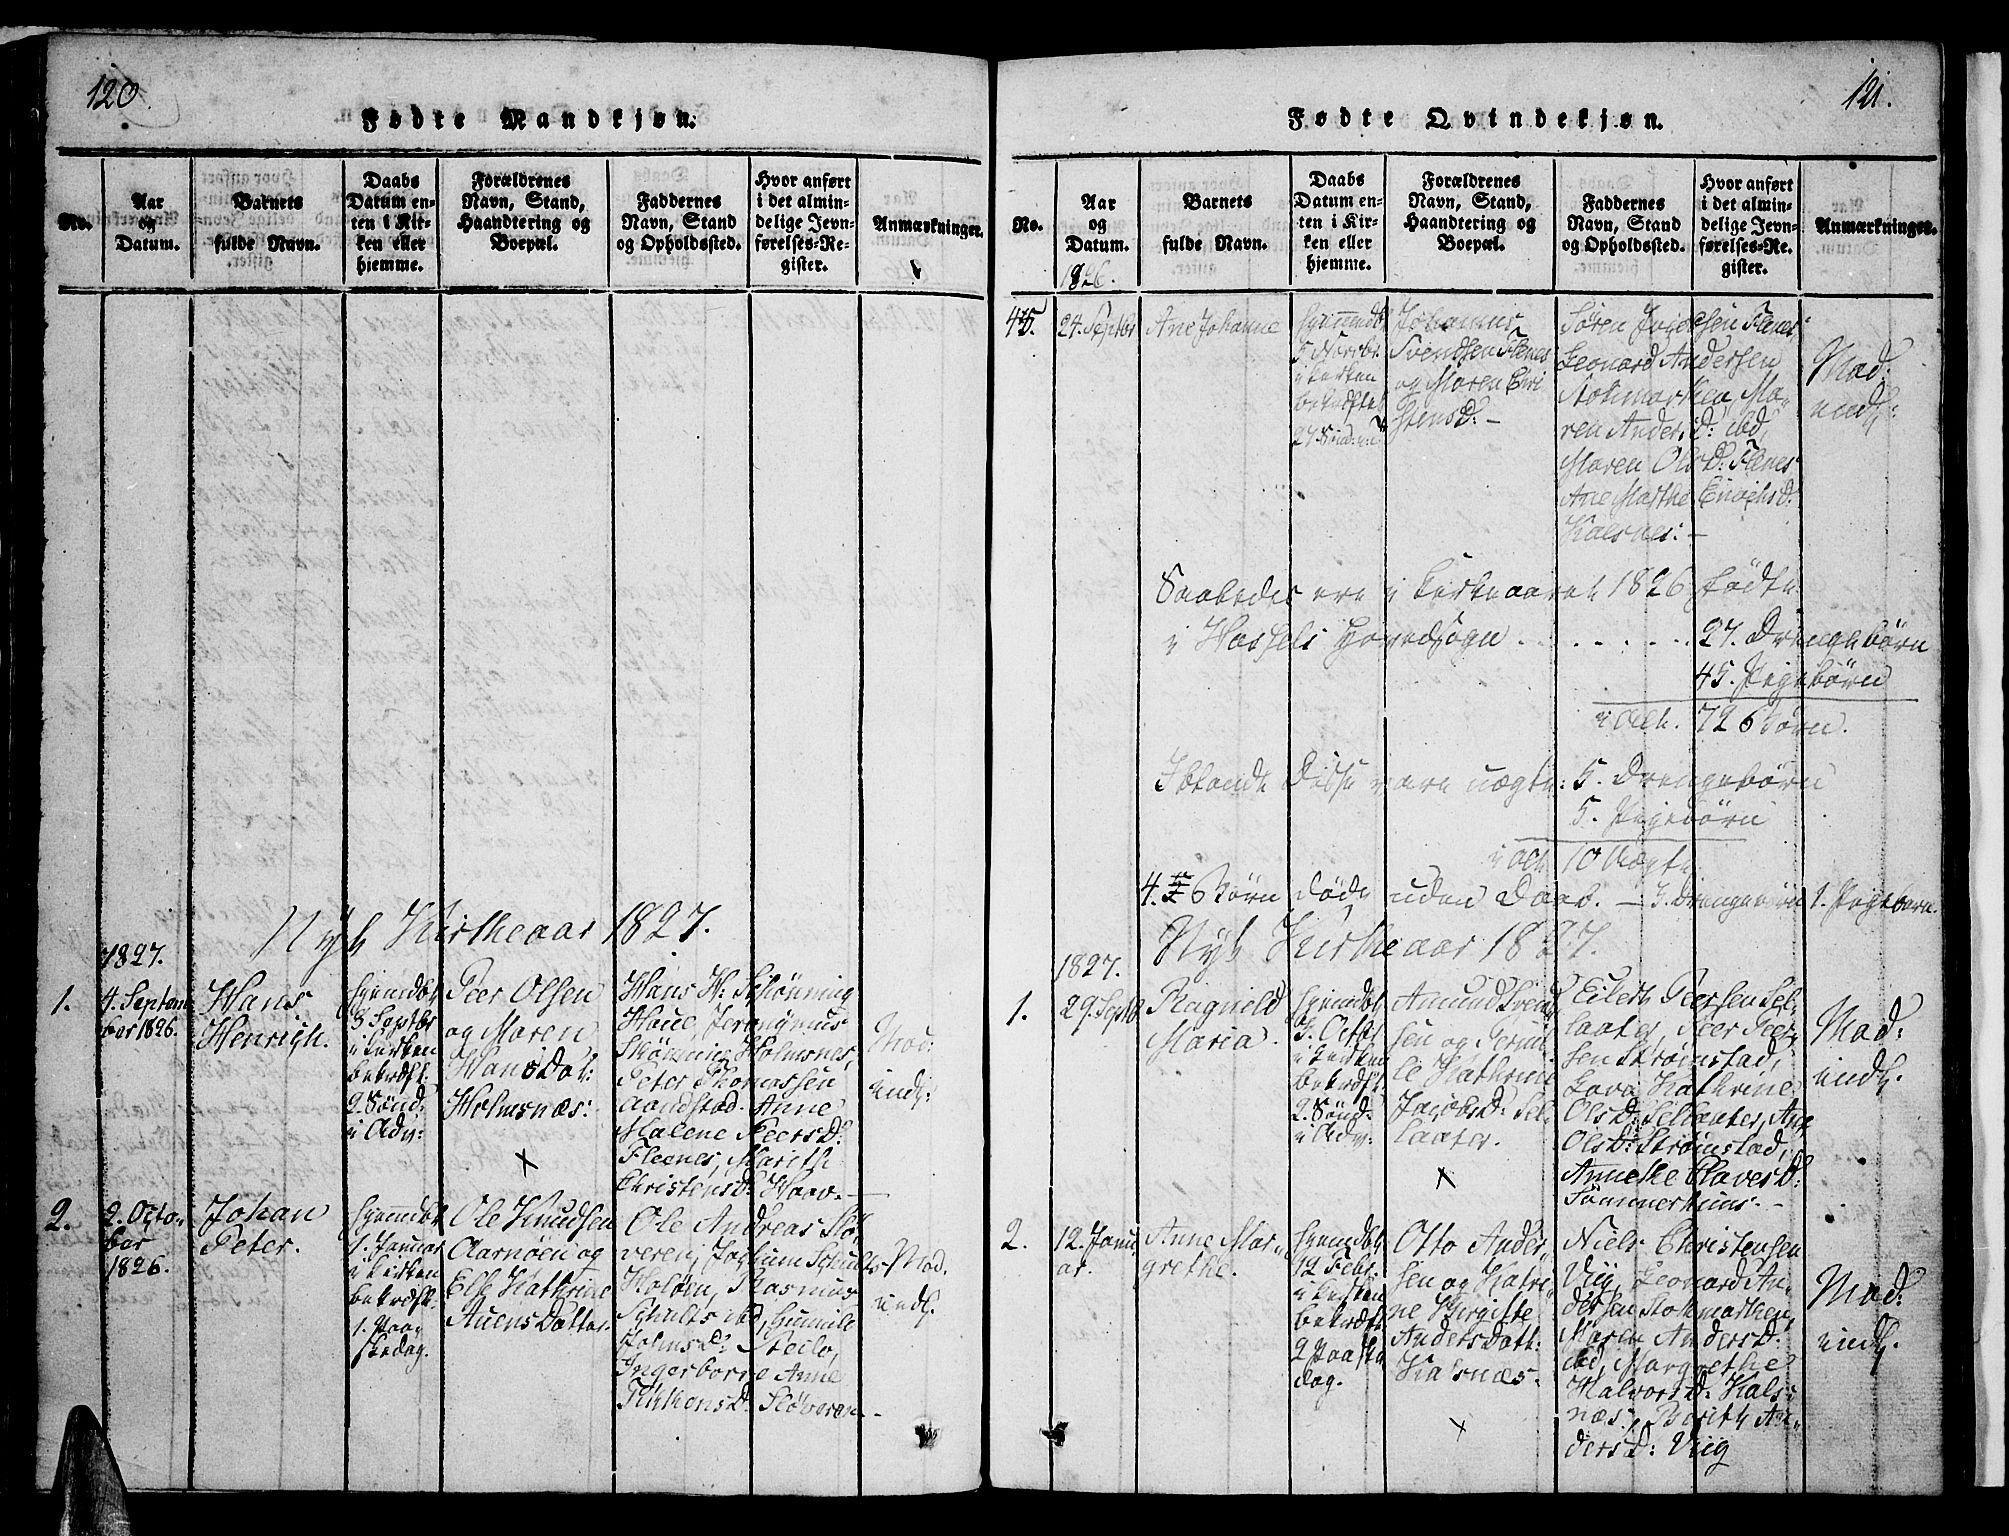 120
Fødte Mandkjøn.
No.
Aar
og
Datum.
Barnets
fulde Navn.
Daabs
Datum en-
ten i Kir-
ken eller
hjemme.
Forældrenes
Navn, Stand,
Haandtering og
Boepæl.
Faddernes
Navn, Stand
og Opholdssted.
Hvor anført
i det almin-
delige Jevn-
førelses-Re-
gister.
Anmærkninger.
Nyt Kirkeaar 1827.
1827.
1.
4. Septem
ber 1826.
Hans
Henrich.
hjemdbt
8 Septbr
i kirken
bekræft.
2. Sønd:
i Adv:
Peer Olsen
og Maren
Hans Dat:
Holmsnæs:
Hans H: Schönning
Haue, Jeronymus
Skønning Holmsnes,
Peter Thomassen
Aandstad. Anne
Malene PeersD:
Fleenes, Marith
ChristensD: Haav.
Mod:
indl:
2.
2. Octo-
ber
1826.
Johan
Peter.
hjemdbt
1. Januar
i kirken
bekræft.
1. Paa-
skedag.
Ole Knudsen
Aarnöen og
Else Kathrine
Auens Datter.
Ole Andreas Slö-
veren, Jochum Schults
Holöen, Rasmus
Schults ibd, Gunnild
JohnsD: Steilo,
Ingerborre Anne
D: Slöveren
Mod.
indl.
121.
Fødte Qvindekjøn.
No.
Aar
og
Datum.
1826.
Barnets
fulde Navn.
Daabs
Datum en-
ten i Kir-
ken eller
hjemme.
Forældrenes
Navn, Stand,
Haandtering og
Boepæl.
Faddernes
Navn, Stand
og Opholdssted.
Hvor anført
i det almin-
delige Jevn-
førelses-Re-
gister.
Anmærkninger.
45.
24. Septbr
Ane Johanne
hjemmedbt
5 Novbr.
i kirken
bekræftet
Johannes
Svendsen Flenes
og Maren Chri
stensD: -
Søren Flenes
Leonard Andersen
Stokmarken, Ma-
ren AndersD: ibd,
Maren OlsD: Flenes
Ane Marthe EnochsD:
Kalsnes: -
Mod:
indl:
Saaledes ere i Kirkeaaret 1826 fødte
i Hassels Hovedsogn . . . . . . . 27. Drengebörn
45. Pigebörn
i Alt. 72 Börn.
Iblandt Disse vare uægte: 5. Drengebörn
5. Pigebörn
i Alt 10 Uægte
4. Börn döde uden Daab. - 3. Drengebörn 1. Pigebarn.
Nyt Kirkeaar 1827.
1827.
1.
29. Septb
Ragnild
Maria.
hjemdbt
3. Octbr
i kirken
bekræft
2. Sønd:
i Adv:
Amund Svend
sen og Perni-
le Kathrine
JacobsD: Sel-
laater.
Eilert Peersen Sel-
laater, Peer Peer-
sen Strömstad,
Lava Kathrine
OlsD: Sellaater, Ane
OlsD: Strömstad,
Anneke ClavesD:
Mod:
indl.
2.
12. Janu
ar.
Anne Mar-
grethe.
hjemdbt
12 Febr.
i kirken
bekræft
2 Paaske
dag.
Otto Ander-
sen og Katri-
ne Birgitte
Anders Datt:
Kalsnæs.
Niels Christensen
Viig, Leonard An-
dersen Stokmarken,
Maren AndersD:
ibd, Margrethe
HalvorsD: Kals-
næs, Berith An-
dersD: Viig
Mod:
indl.